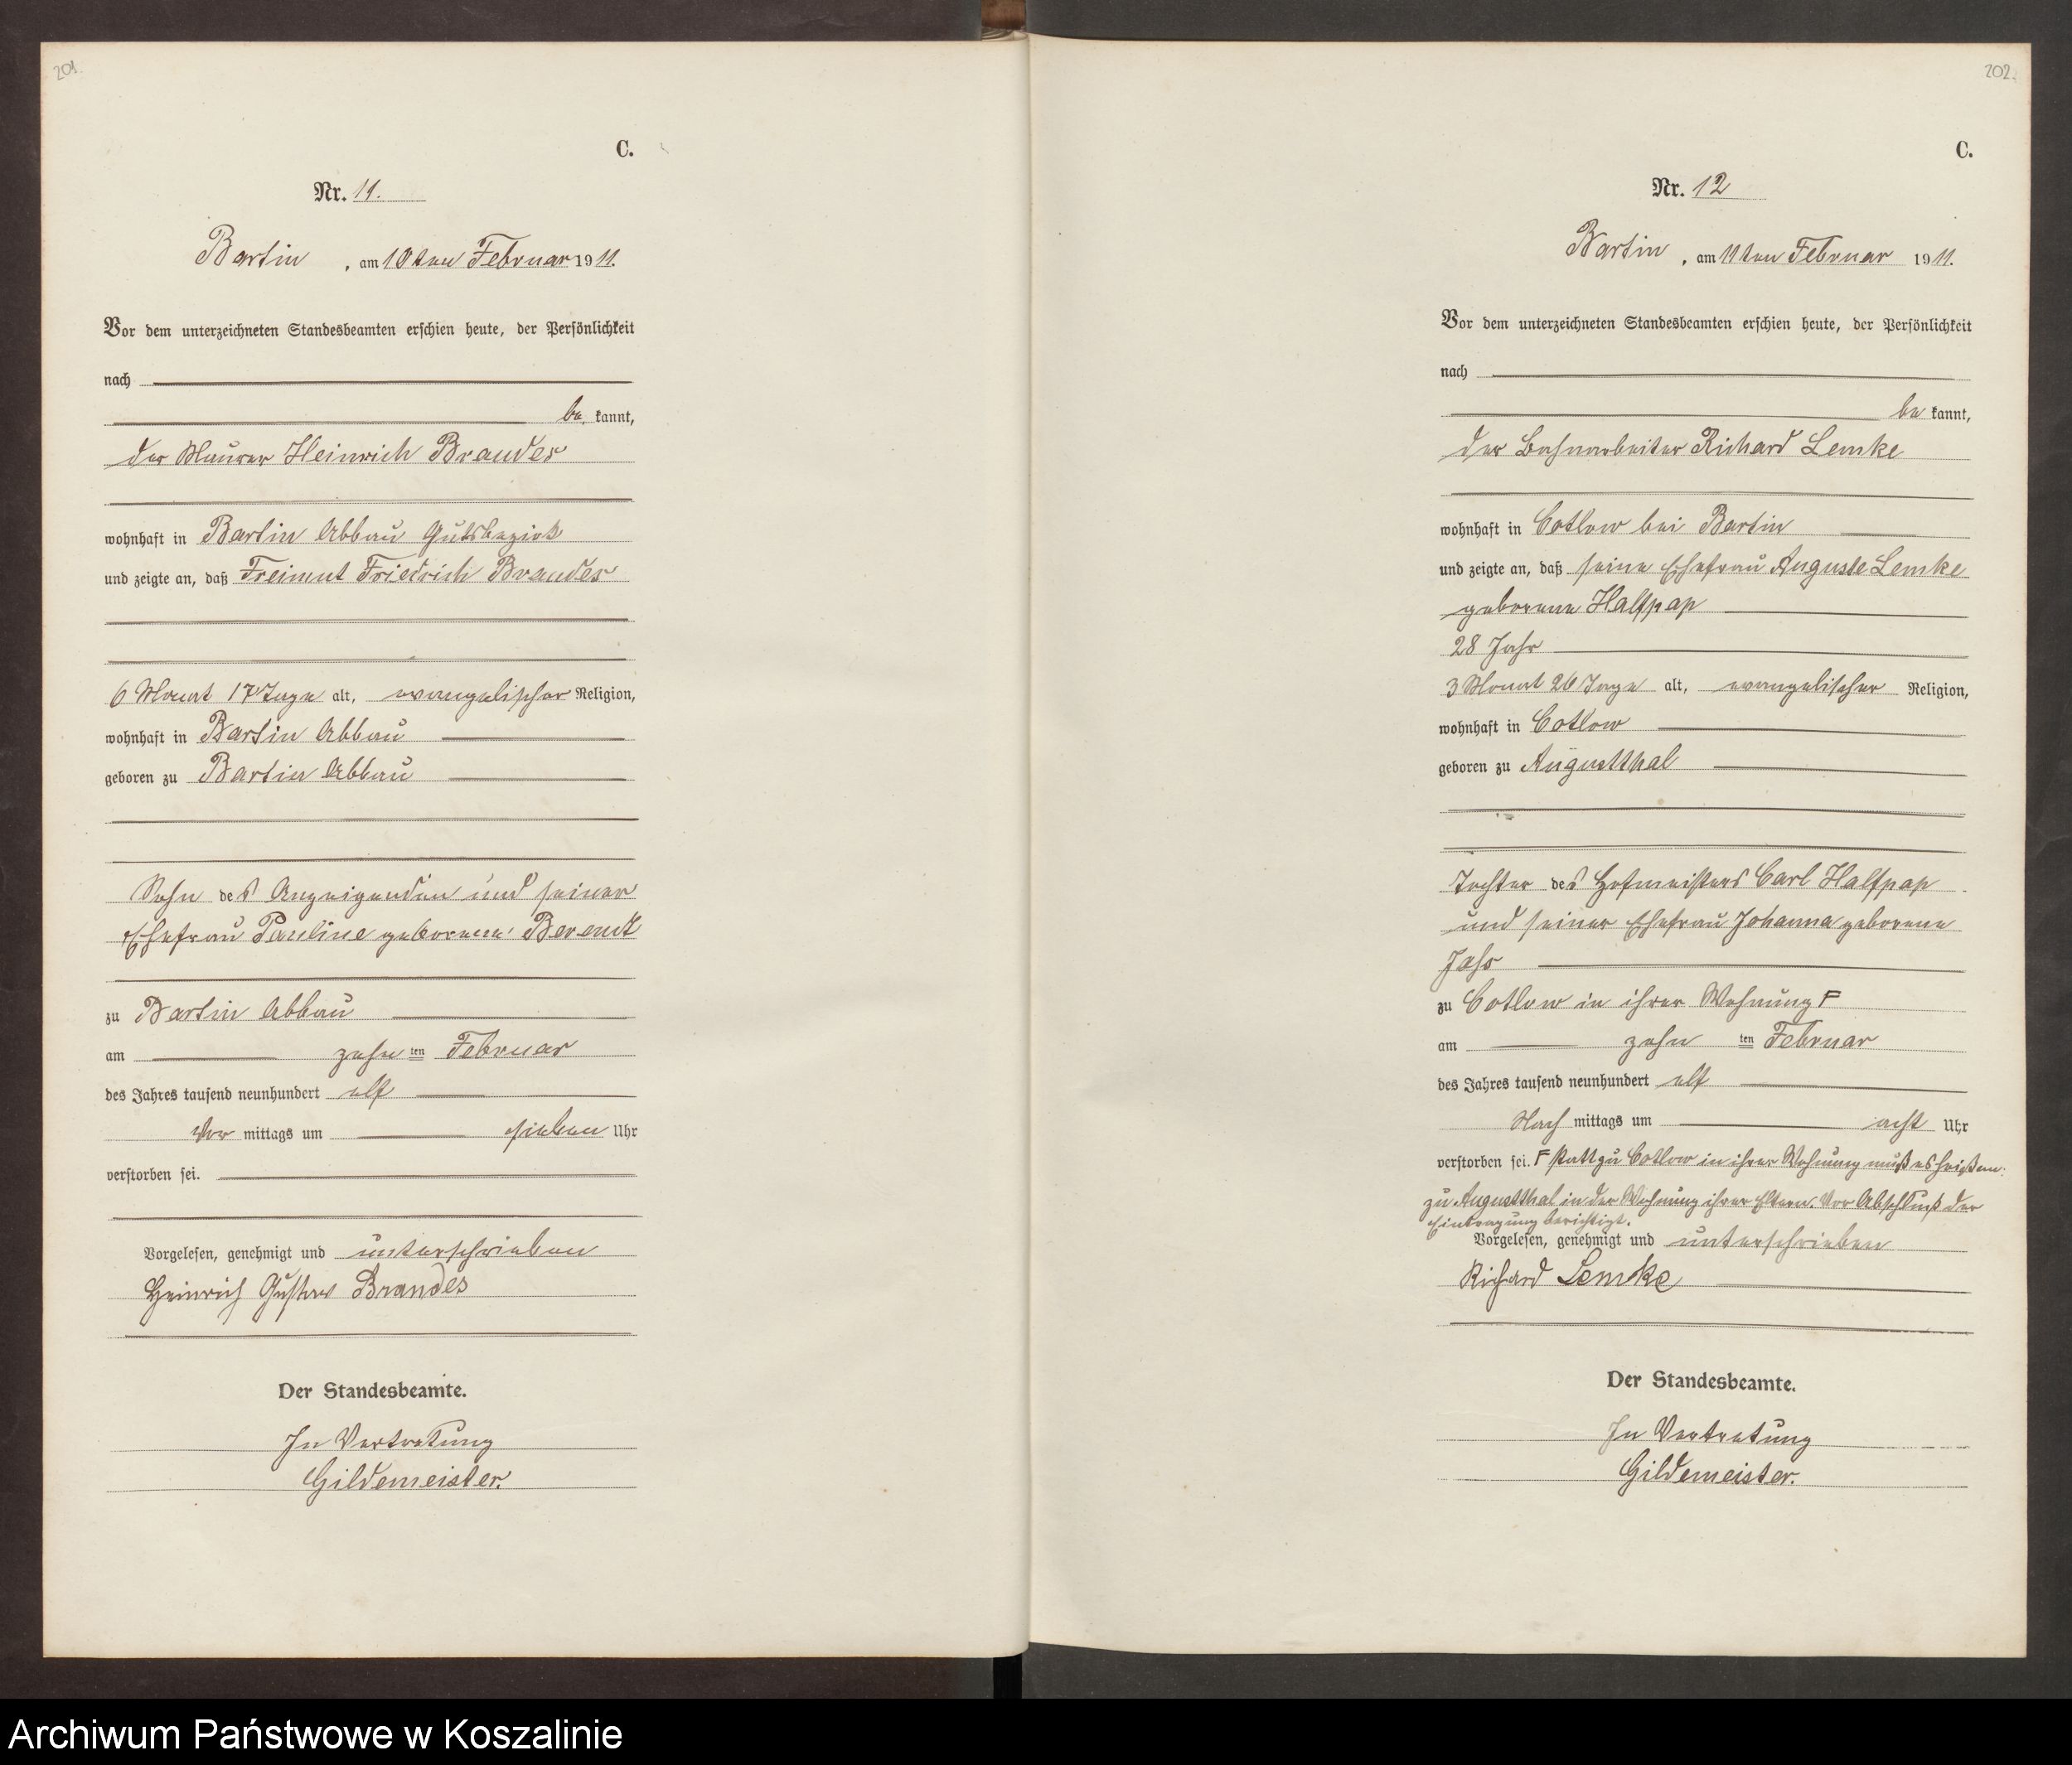 201.
C.
Nr. 11.
Bartin, am 10ten Februar 1911.
Vor dem unterzeichneten Standesbeamten erschien heute, der Persönlichkeit
nach
be kannt,
der Maurer Heinrich Brandes
wohnhaft in Bartin Abbau Gutsbezirk
und zeigte an, daß Freimut Friedrich Brandes
6 Monat 17 Tage alt, evangelischer Religion,
wohnhaft in Bartin Abbau
geboren zu Bartin Abbau
Sohn des Anzeigenden und seiner
Ehefrau Pauline geborene Berendt
zu Bartin Abbau
am zehn ten Februar
des Jahres tausend neunhundert elf
Vor mittags um sieben Uhr
verstorben sei.
Vorgelesen, genehmigt und unterschrieben
Heinrich Gustav Brandes
Der Standesbeamte.
In Vertretung
Gildemeister.
202.
C.
Nr. 12
Bartin, am 11ten Februar 1911.
Vor dem unterzeichneten Standesbeamten erschien heute, der Persönlichkeit
nach
be kannt,
der Bahnarbeiter Richard Lemke
wohnhaft in Cotlow bei Bartin
und zeigte an, daß seine Ehefrau Auguste Lemke
geborene Halfpap
28 Jahr
3 Monat 26 Tage alt, evangelischer Religion,
wohnhaft in Cotlow
geboren zu Augustthal
Tochter des Hofmeisters Carl Halfpap
und seiner Ehefrau Johanna geborene
Jahr
zu Cotlow in ihrer Wohnung F
am zehn ten Februar
des Jahres tausend neunhundert elf
Nach mittags um acht Uhr
verstorben sei. F statt zu Cotlow in ihrer Wohnung muß es heißen:
zu Augustthal in der Wohnung ihrer Eltern. Vor Abschluß der
Eintragung berichtigt.
Vorgelesen, genehmigt und unterschrieben
Richard Lemke
Der Standesbeamte.
In Vertretung
Gildemeister.
Archiwum Państwowe w Koszalinie